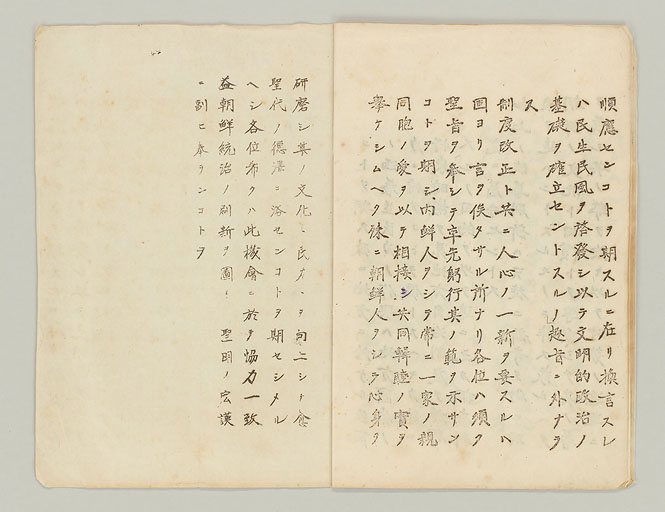 順應センコトヲ期スルニ在リ換言スレ
ハ民生民風ヲ啓發シ以テ文明的政治ノ
基礎ヲ確立セントスルノ趣旨ニ外ナラ
ス
制度改正ト共ニ人心ノ一新ヲ要スルハ
固ヨリ言ヲ俟タサル所ナリ各位ハ須ク
聖旨ヲ奉シテ卒先躬行其ノ範ヲ示サン
コトヲ期シ、内鮮人ヲシテ常ニ一家ノ親
同胞ノ愛ヲ以テ相接シ共同輯睦ノ實ヲ
擧ケシムヘク殊ニ朝鮮人ヲシテ心身ヲ
研磨シ其ノ文化ト民力トヲ向上シト
聖代ノ德澤ニ浴センコトヲ期セシメル
ヘシ各位希クハ此機會ニ於テ協力一致
益朝鮮統治ノ刷新ヲ圖リ 聖明ノ宏謨
ニ副ヒ奉ランコトヲ